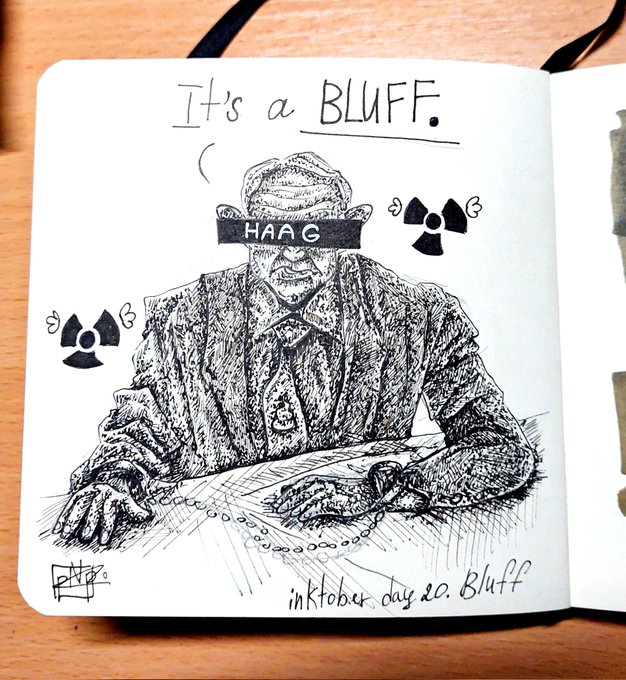 It's a BLUFF.
HAAG
inktober day 20. Bluff